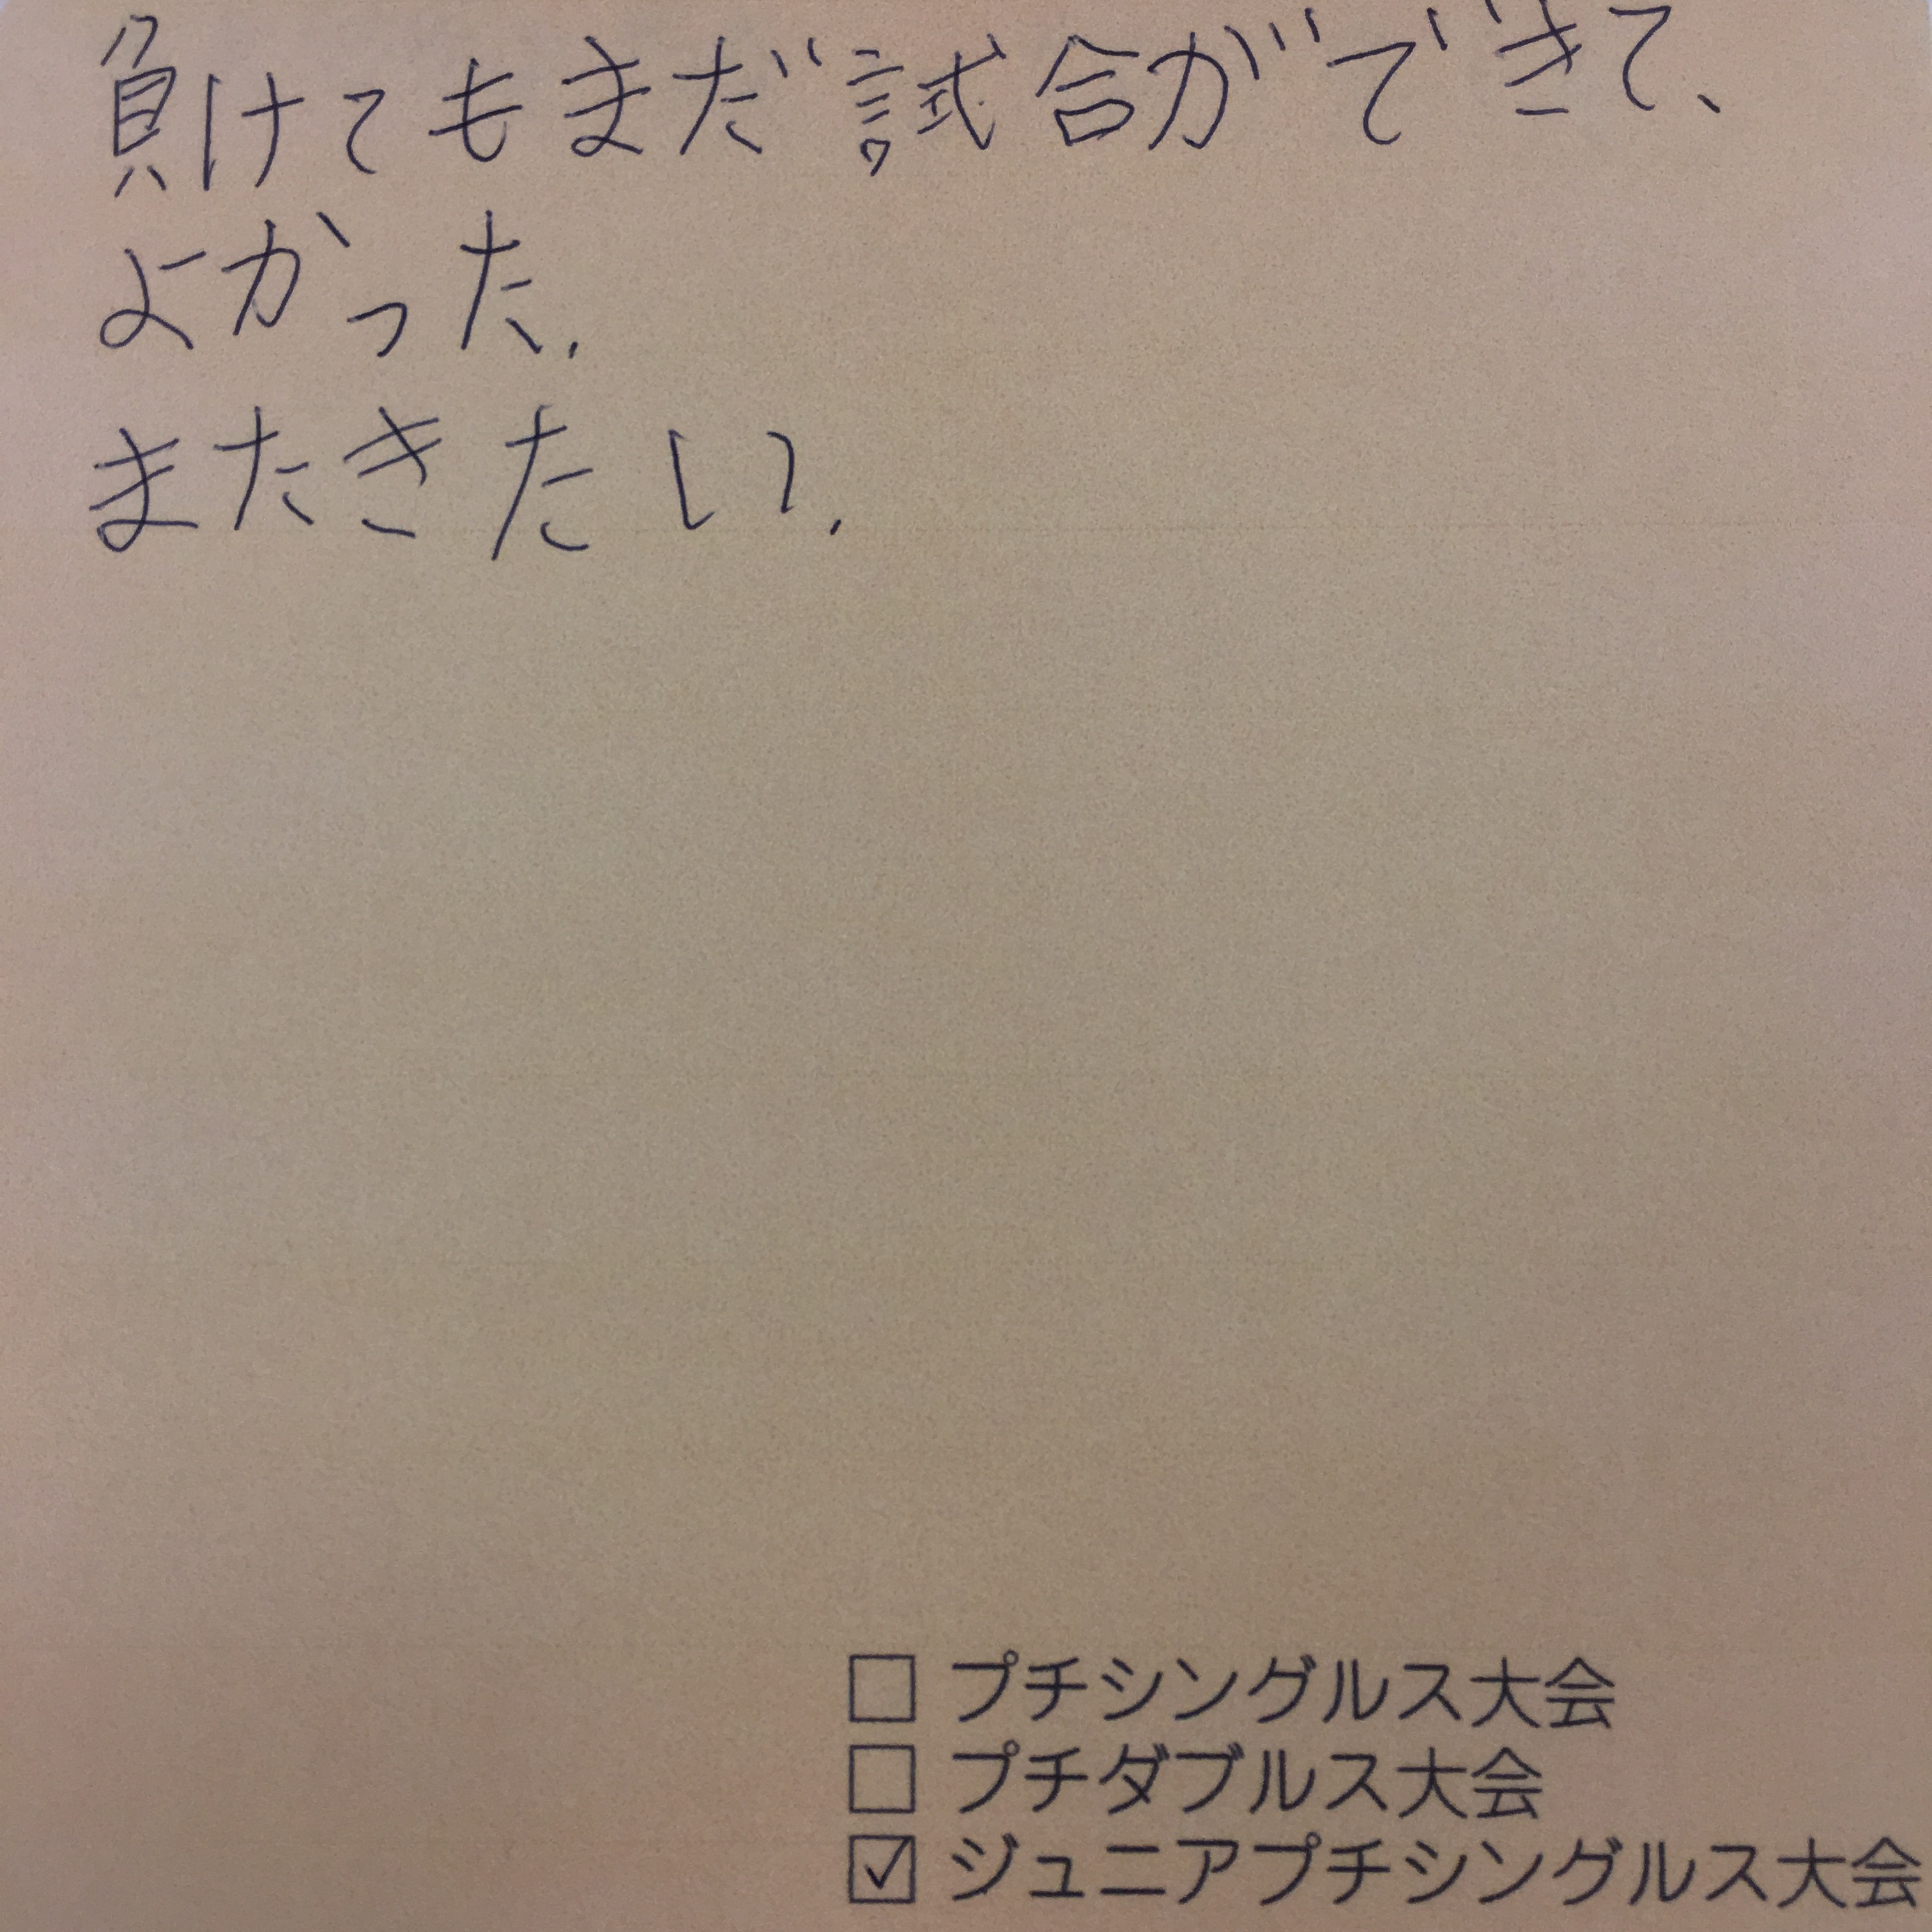 負けてもまだ試合ができて、
よかった.
またきたい.
□ プチシングルス大会
□ プチダブルス大会
☑ ジュニアプチシングルス大会